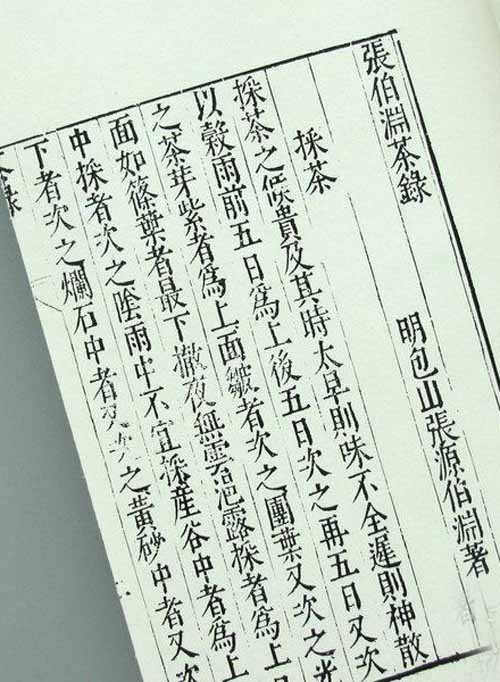 張伯淵茶錄
明包山張源伯淵著
採茶
採茶之候貴及其時太早則味不全遲則神散
以穀雨前五日爲上後五日次之再五日又次
之茶芽紫者爲上面皺者次之團葉又次之光
面如篠葉者最下徹夜無雲浥露採者爲上
中採者次之陰雨中不宜採産谷中者爲上
下者次之爛石中者又次之黃砂中者又次
錄